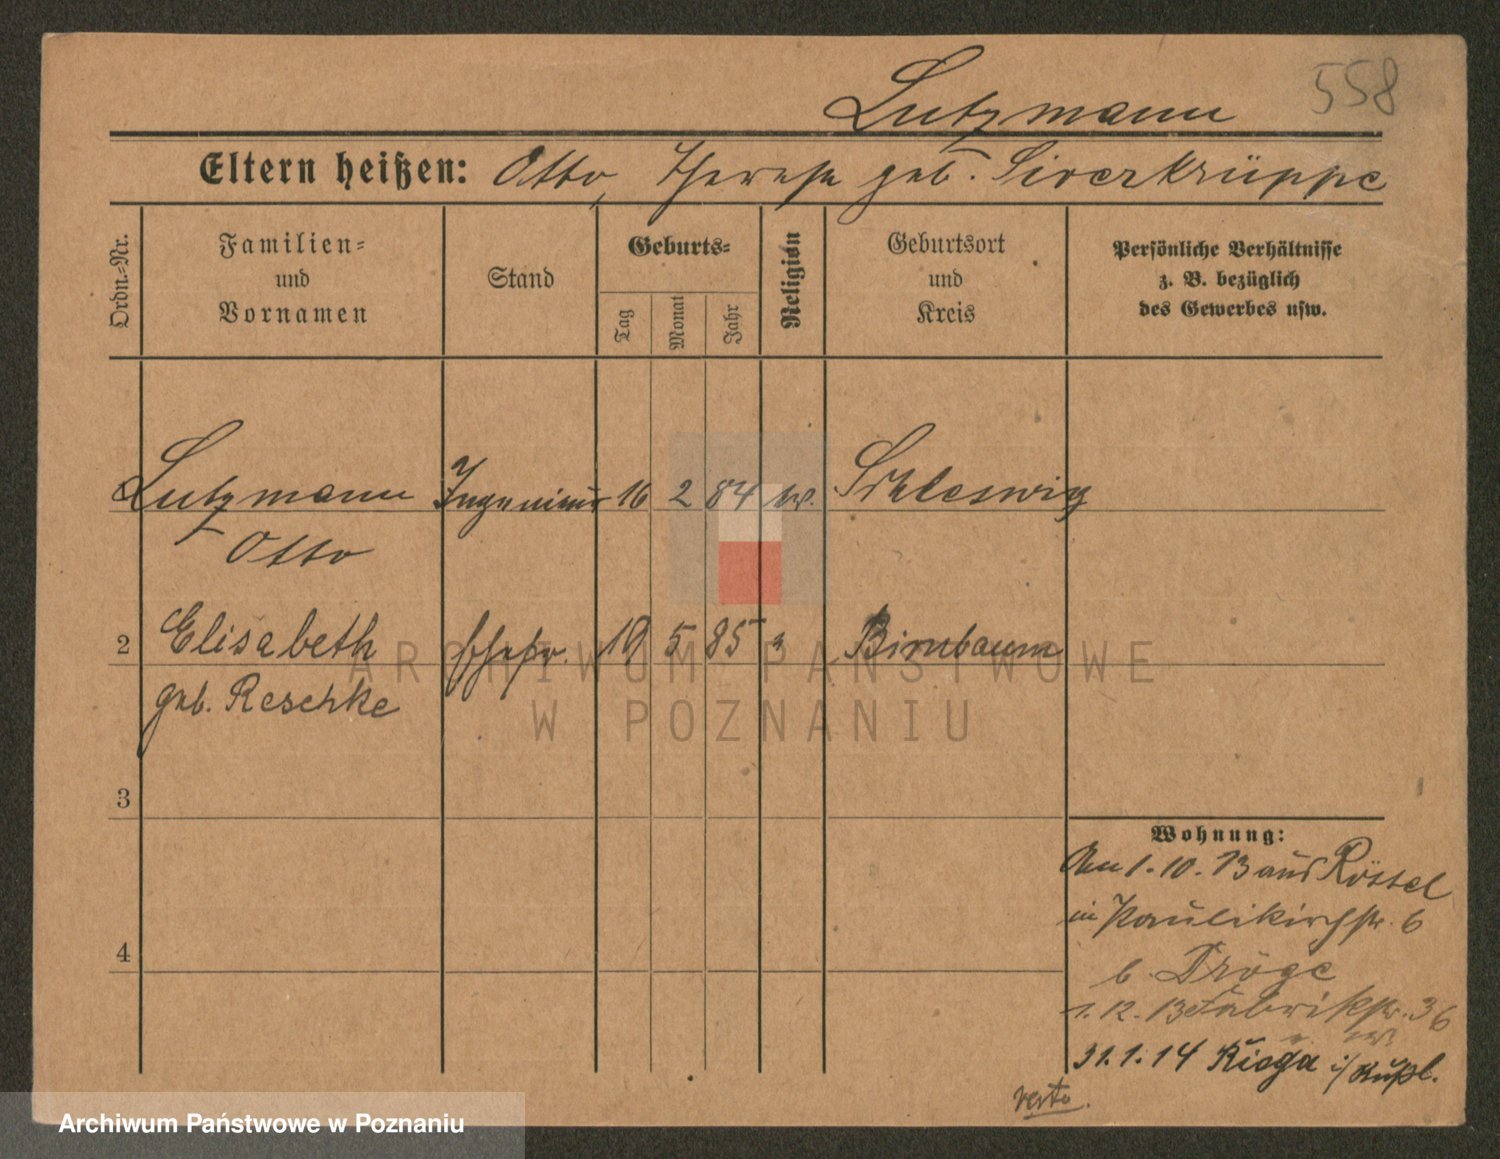 558
Lutzmann
Eltern heißen: Otto, Therese geb. Siverkrüppe
Ordn.=Nr.
Familien=
und
Vornamen
Stand
Geburts=
Tag
Monat
Jahr
Religion
Geburtsort
und
Kreis
Persönliche Verhältnisse
z. B. bezüglich
des Gewerbes usw.
Lutzmann Ingenieur 16 2 84 Schleswig
Otto
2 Elisabeth Ehefr. 19 5 85 Birnbaum
geb. Reschke
3
4
Wohnung:
Am 1.10.13 aus Rössel
in Paulikirchstr. 6
b. Dröge
1.12.13 Fabrikstr. 36
31.1.14 Riega i/Rußl.
verto.
ARCHIWUM PAŃSTWOWE
W POZNANIU
Archiwum Państwowe w Poznaniu